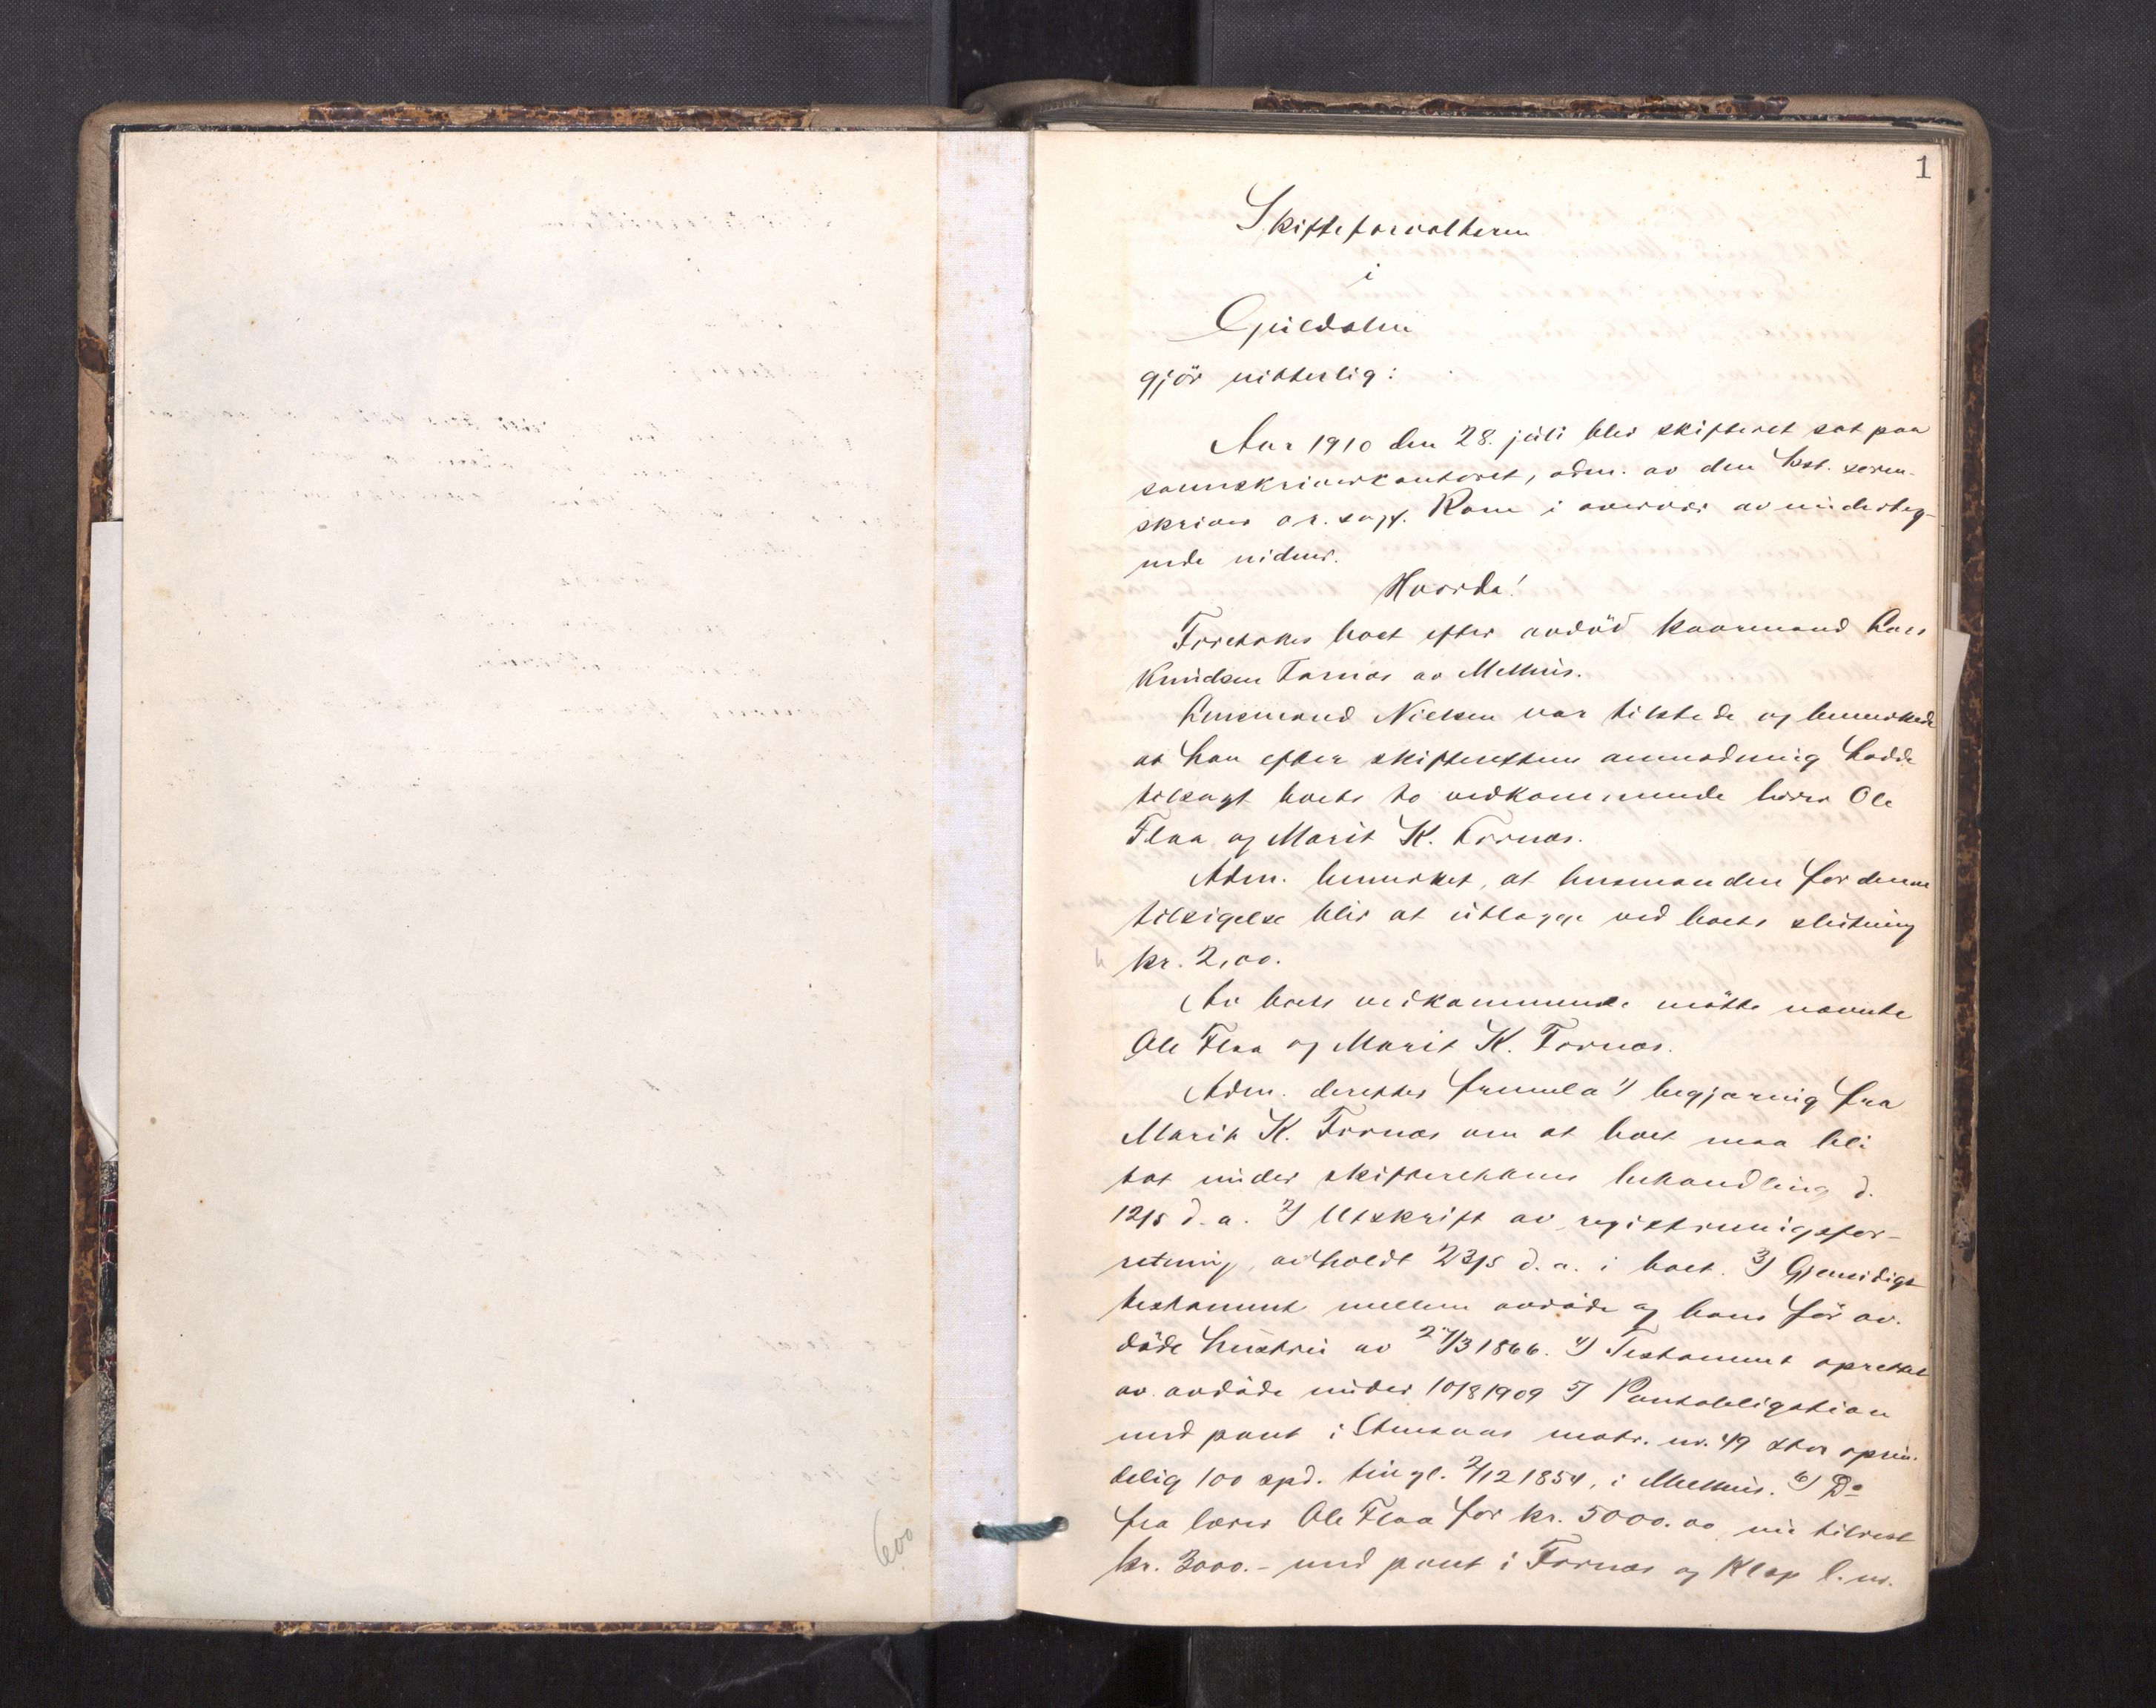 1
Skifteforvalteren
i
Guldalen
gjör vitterlig:
Aar 1910 den 28. juli blev skifteret sat paa
sorenskriverkontoret, adm. av den kst. soren-
skriver o.r.sagf. Rom i overvær av underteg-
nede vidner.
Hvorda!
Foretokes boet efter avdöd kaarmand Lars
Knudsen Fornæs av Melhus.
Lensmand Nielsen var tilstede og bemerkede
at han efter skifterettens anmodning hadde
tilsagt boets to vedkommende lærer Ole
Flaa og Marit K. Fornæs.
Adm. bemerket, at lensmanden for denne
tilsigelse blir at utlægge ved boets slutning
kr. 2,00.
Av boets vedkommende mötte nævnte
Ole Flaa og Marit K. Fornæs.
Adm. derefter fremla 1) begjæring fra
Marit K. Fornæs om at boet maa bli
tat under skifterettens behandling d.
12/5 d.a. 2) Utskrift av registreringsfor-
retning, avholdt 23/5 d.a. i boet. 3) Gjensidigt
testament mellem avdöde og hans för av-
döde hustru av 27/3 1866. 4) Testament oprettet
av avdöde under 10/8 1909 5) Pantobligation
med pant i Stensaas matr. nr. 49 stor oprin-
delig 100 spd. tingl. 2/12 1854, i Melhus. 6) Do
fra lærer Ole Flaa for kr. 5000.00 nu tilrest
kr. 3000.- med pant i Fornæs og Klep l. nr.
600